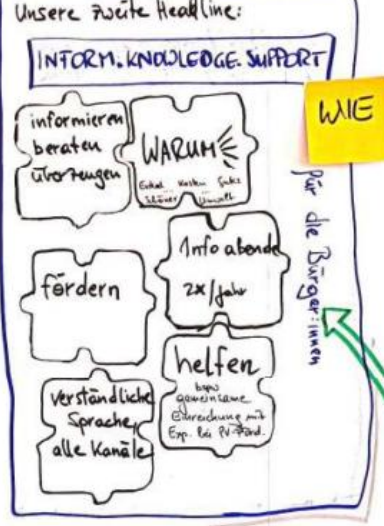 Unsere zweite Headline:
INFORM. KNOWLEDGE. SUPPORT
WIE
informieren
beraten
überzeugen
WARUM
Enkel Kosten
Umwelt
für die Bürger:innen
fördern
Infoabende
2x/Jahr
helfen
bspw
gemeinsame
Einreichung mit
Exp. bei PV-Förd.
verständliche
Sprache,
alle Kanäle